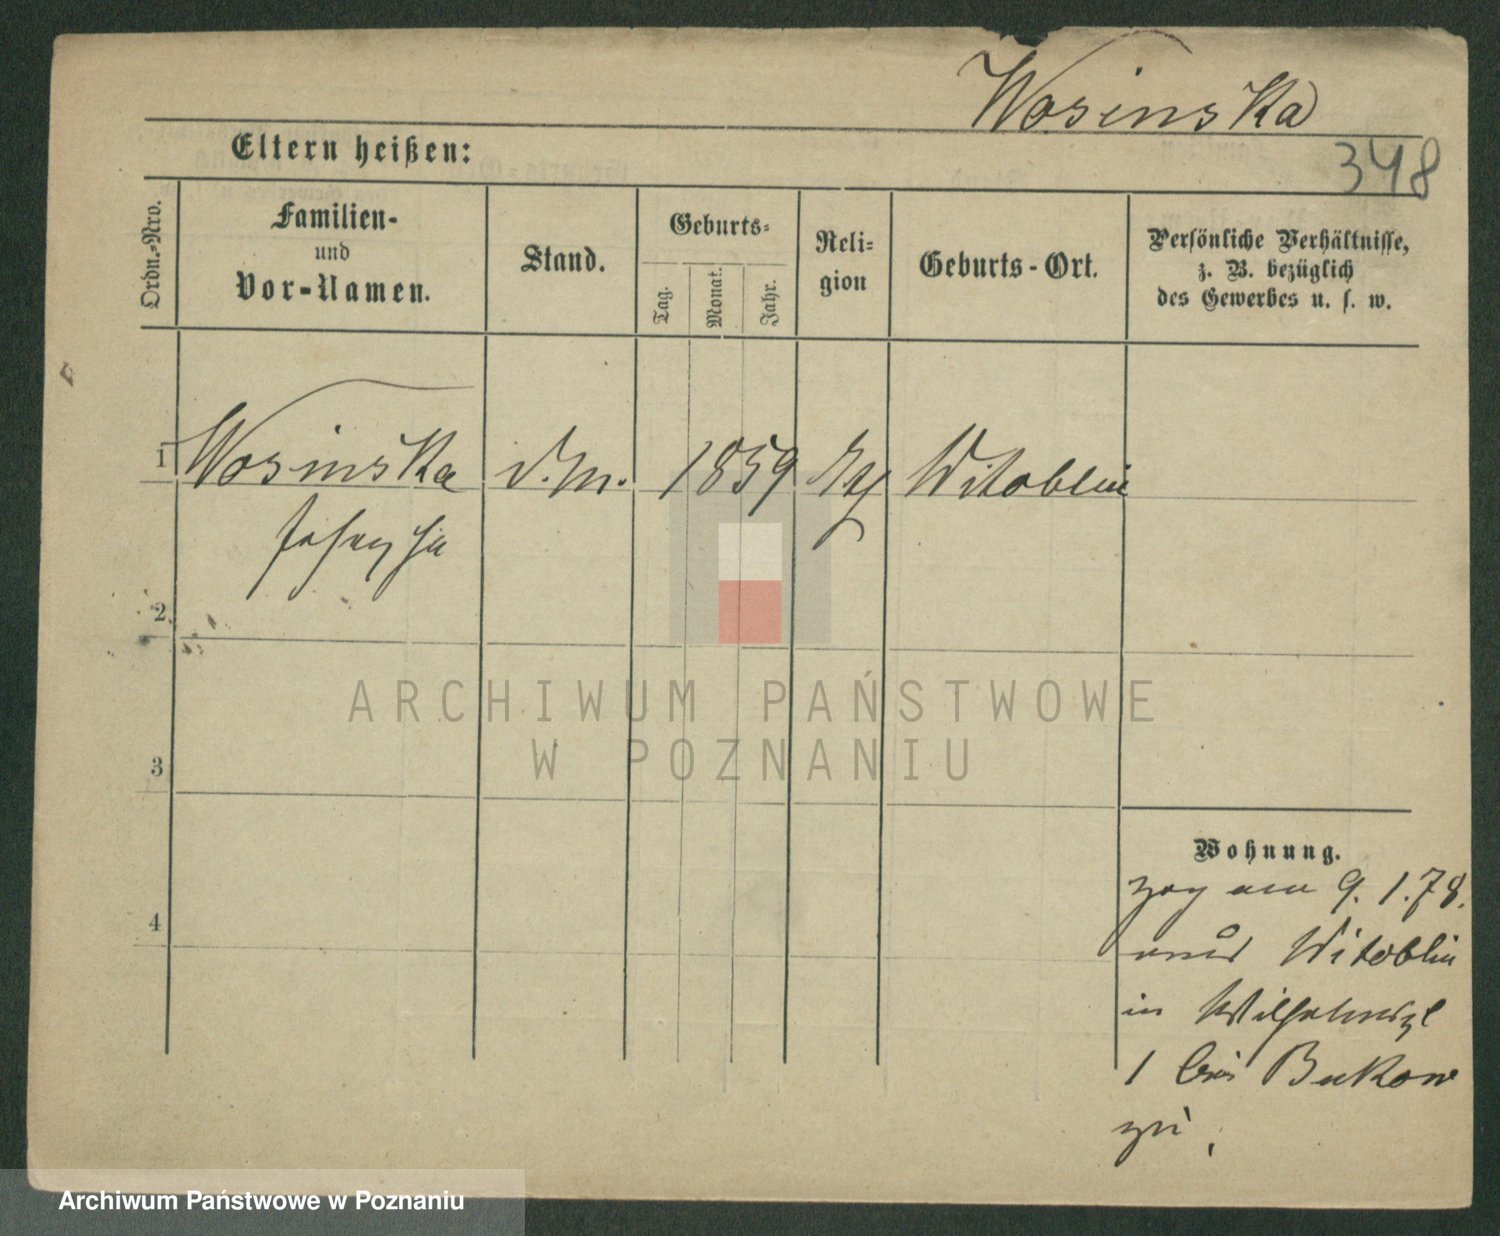 Wosinska
Eltern heißen:
348
Ordn.-Nro.
Familien-
und
Vor-Namen.
Stand.
Geburts-
Tag.
Monat.
Jahr.
Reli-
gion
Geburts-Ort.
Persönliche Verhältnisse,
z. B. bezüglich
des Gewerbes u. s. w.
1 Wosinska d. M. 1859 Witoblin
Josepha
2
3
4
ARCHIWUM PAŃSTWOWE
W POZNANIU
Wohnung.
zog am 9.1.78.
aus Witoblin
in
1 bei Bukow
zu.
Archiwum Państwowe w Poznaniu